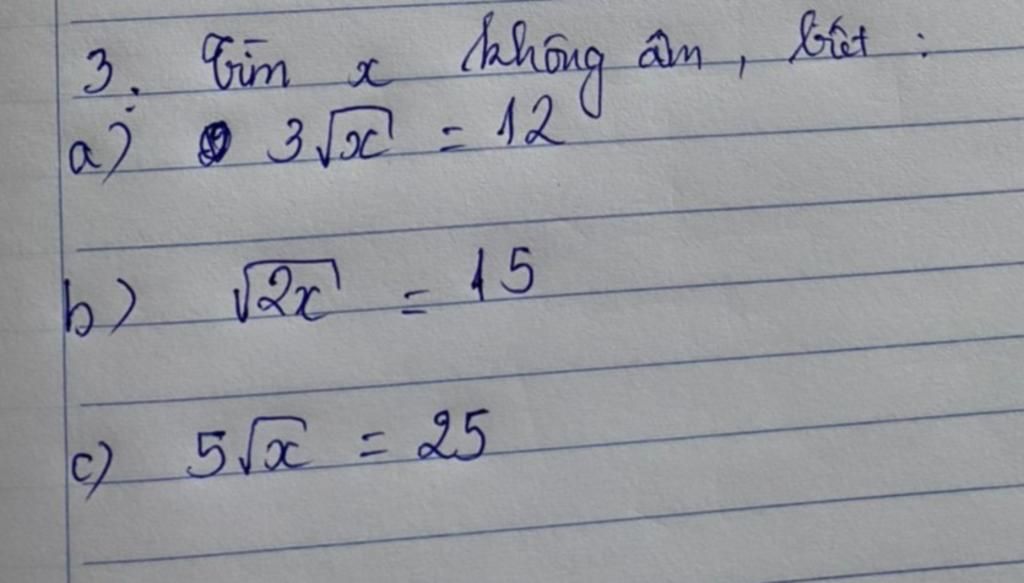 3. Tìm x không âm, biết :
a) 3√x = 12
b) √2x = 15
c) 5√x = 25